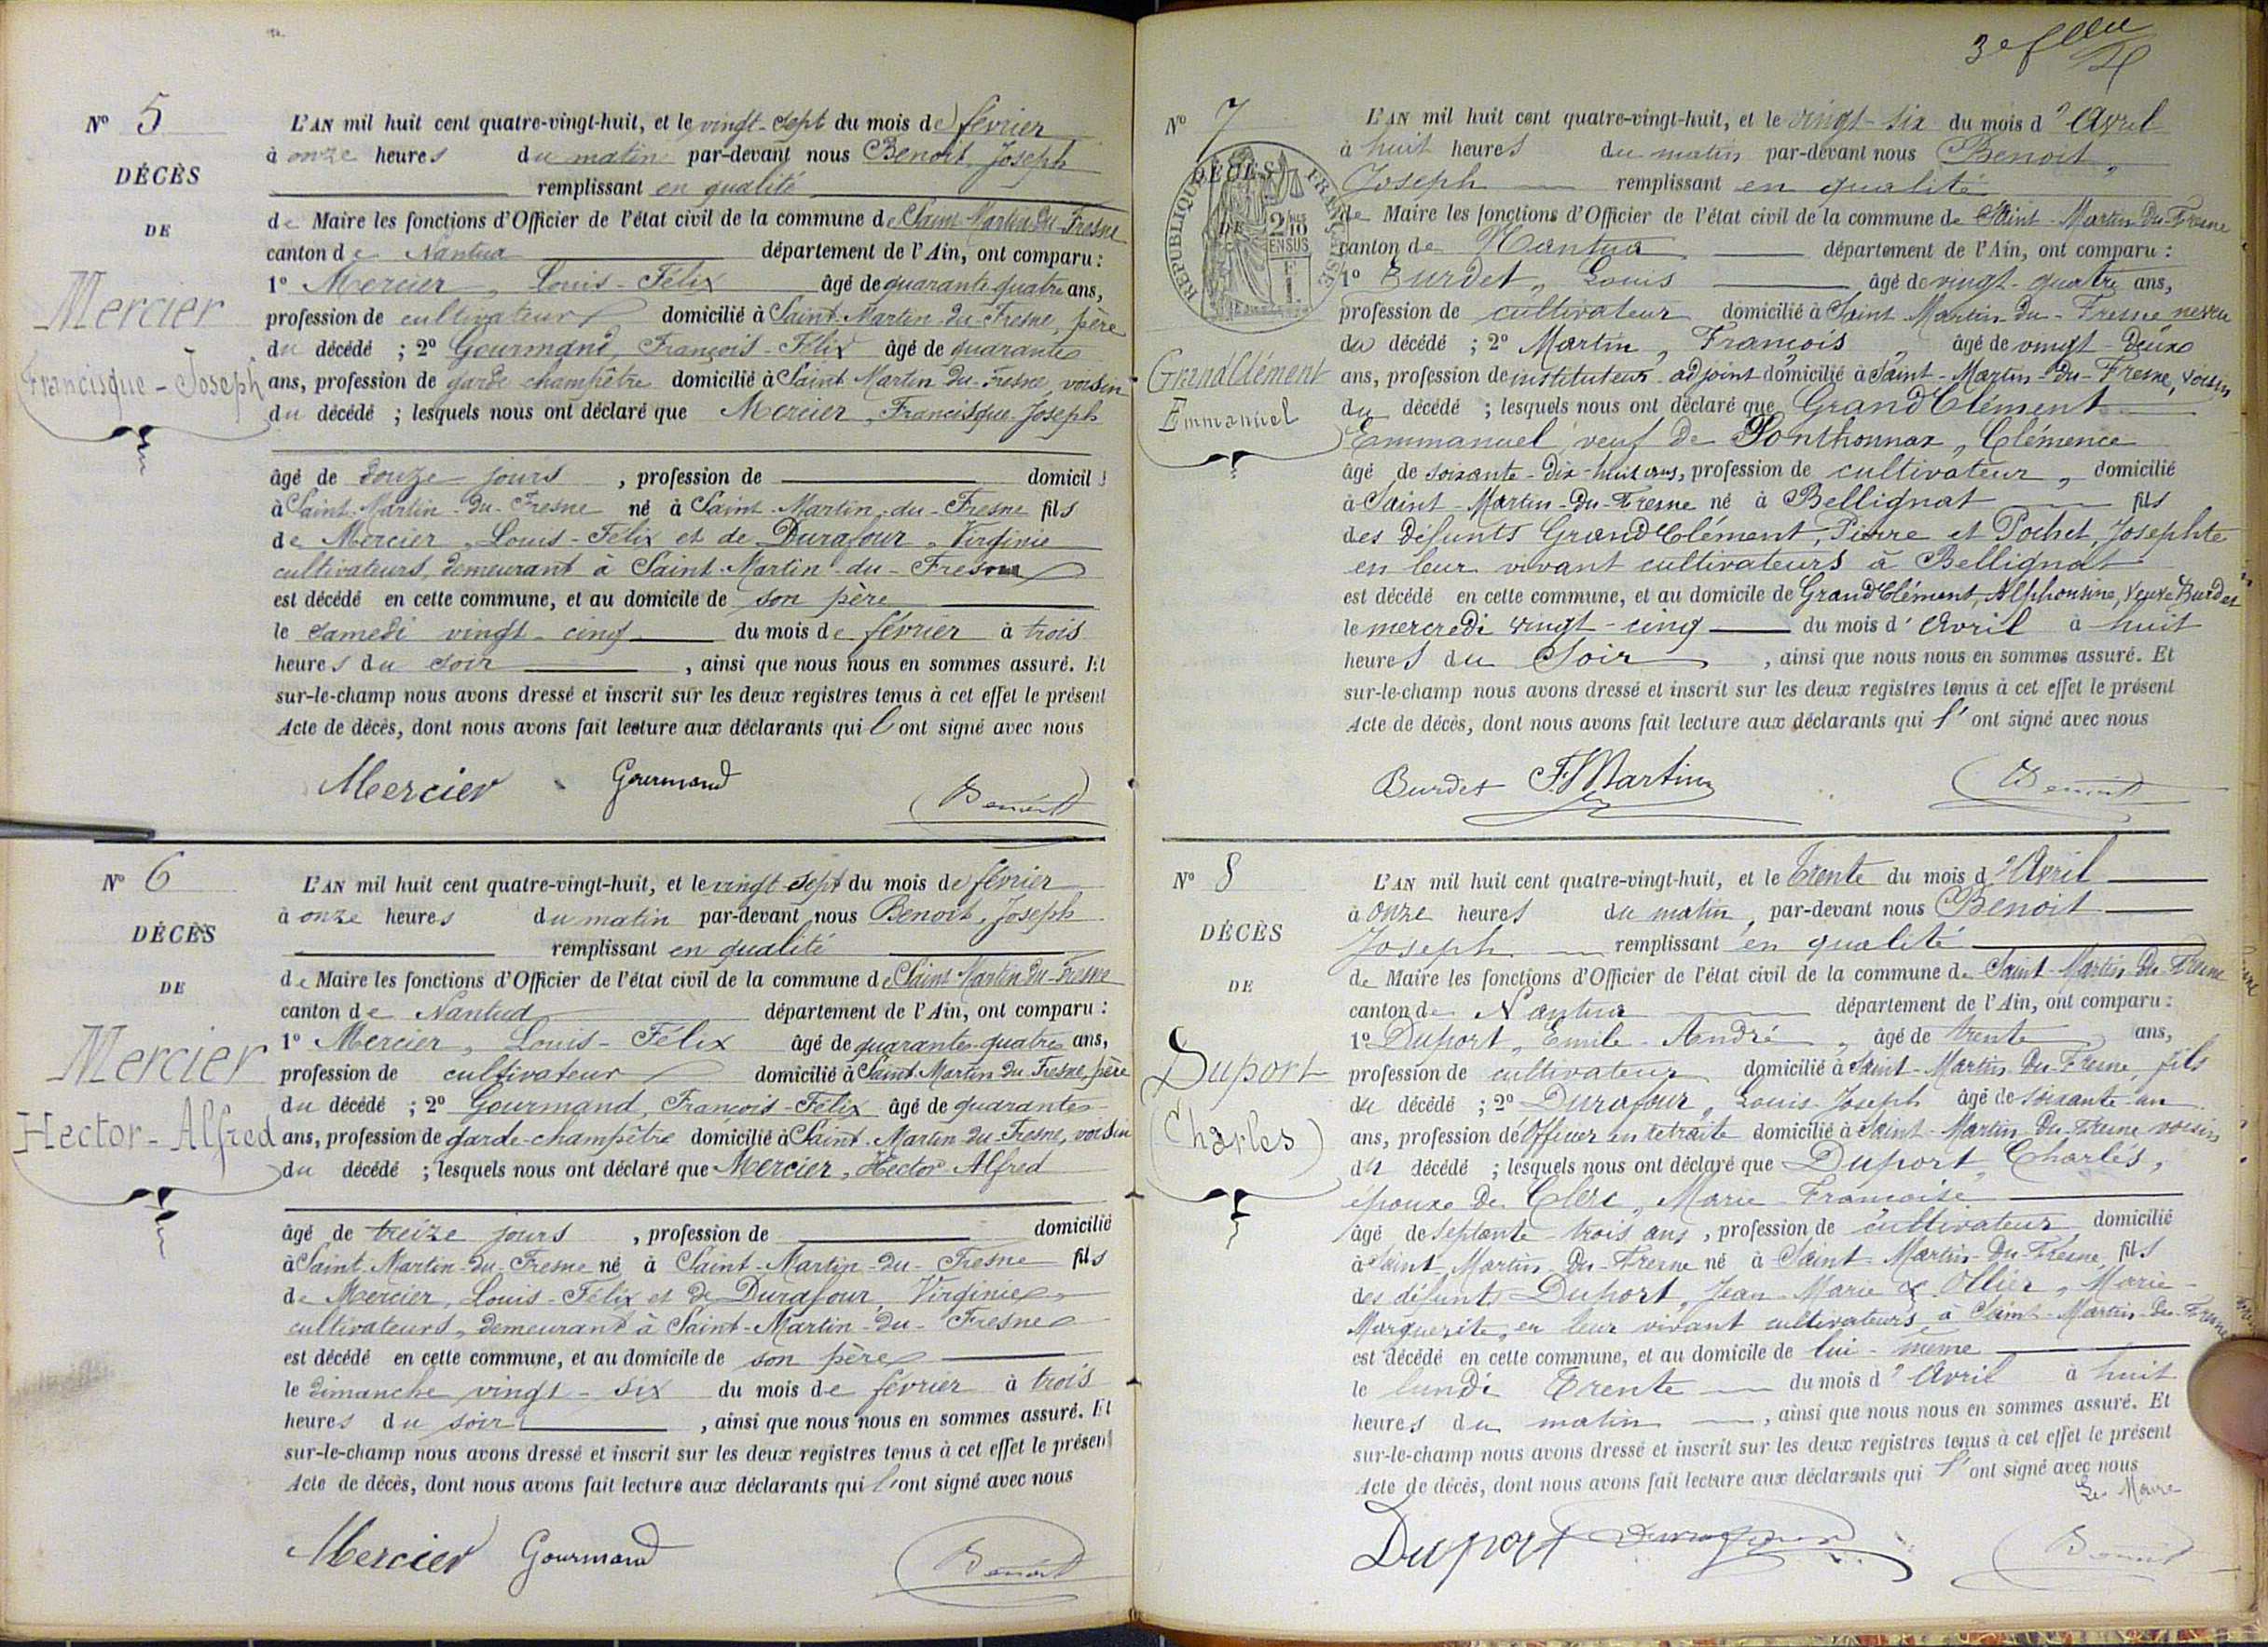 Nº 5
DÉCÈS
DE
Mercier
Francisque-Joseph
L'AN mil huit cent quatre-vingt-huit, et le vingt-sept du mois de février
à onze heures du matin par-devant nous Benoit, Joseph
remplissant en qualité
de Maire les fonctions d'Officier de l'état civil de la commune de Saint-Martin-du-Fresne
canton de Nantua département de l'Ain, ont comparu :
1º Mercier, Louis-Félix âgé de quarante quatre ans,
profession de cultivateur domicilié à Saint-Martin-du-Fresne, père
du décédé ; 2º Gourmand, François-Félix âgé de quarante
ans, profession de garde champêtre domicilié à Saint-Martin-du-Fresne, voisin
du décédé ; lesquels nous ont déclaré que Mercier, Francisque-Joseph
âgé de douze jours , profession de domicil
à Saint-Martin-du-Fresne né à Saint-Martin-du-Fresne fils
de Mercier, Louis-Félix et de Durafour, Virginie
cultivateurs, demeurant à Saint-Martin-du-Fresne
est décédé en cette commune, et au domicile de son père
le samedi vingt-cinq du mois de février à trois
heures du soir , ainsi que nous nous en sommes assuré. Et
sur-le-champ nous avons dressé et inscrit sur les deux registres tenus à cet effet le présent
Acte de décès, dont nous avons fait lecture aux déclarants qui l'ont signé avec nous
Mercier Gourmand Benoit
Nº 6
DÉCÈS
DE
Mercier
Hector-Alfred
L'AN mil huit cent quatre-vingt-huit, et le vingt-sept du mois de février
à onze heures du matin par-devant nous Benoit, Joseph
remplissant en qualité
de Maire les fonctions d'Officier de l'état civil de la commune de Saint-Martin-du-Fresne
canton de Nantua département de l'Ain, ont comparu :
1º Mercier, Louis-Félix âgé de quarante-quatre ans,
profession de cultivateur domicilié à Saint-Martin-du-Fresne, père
du décédé ; 2º Gourmand, François-Félix âgé de quarante
ans, profession de garde-champêtre domicilié à Saint-Martin-du-Fresne, voisin
du décédé ; lesquels nous ont déclaré que Mercier, Hector-Alfred
âgé de treize jours , profession de domicilié
à Saint-Martin-du-Fresne né à Saint-Martin-du-Fresne fils
de Mercier, Louis-Félix et de Durafour, Virginie
cultivateurs, demeurant à Saint-Martin-du-Fresne
est décédé en cette commune, et au domicile de son père
le dimanche vingt-six du mois de février à trois
heures du soir , ainsi que nous nous en sommes assuré. Et
sur-le-champ nous avons dressé et inscrit sur les deux registres tenus à cet effet le présent
Acte de décès, dont nous avons fait lecture aux déclarants qui l'ont signé avec nous
Mercier Gourmand Benoit
3e
Nº 7
DÉCÈS
DE
RÉPUBLIQUE FRANÇAISE
2/10
EN SUS
GrandClément
Emmanuel
L'AN mil huit cent quatre-vingt-huit, et le vingt-six du mois d'Avril
à huit heures du matin par-devant nous Benoit,
Joseph remplissant en qualité
de Maire les fonctions d'Officier de l'état civil de la commune de Saint-Martin-du-Fresne
canton de Nantua département de l'Ain, ont comparu :
1º Burdet, Louis âgé de vingt-quatre ans,
profession de cultivateur domicilié à Saint-Martin-du-Fresne neveu
du décédé ; 2º Martin, François, âgé de vingt-deux
ans, profession de instituteur-adjoint domicilié à Saint-Martin-du-Fresne, voisin
du décédé ; lesquels nous ont déclaré que GrandClément
Emmanuel veuf de Ponthonnax, Clémence
âgé de soixante-dix-huit ans, profession de cultivateur, domicilié
à Saint-Martin-du-Fresne né à Bellignat fils
des défunts GrandClément, Pierre et Pochet, Josephte
en leur vivant cultivateurs à Bellignat
est décédé en cette commune, et au domicile de GrandClément, Alphonsine, Veuve Burdet
le mercredi vingt-cinq du mois d'Avril à huit
heures du soir , ainsi que nous nous en sommes assuré. Et
sur-le-champ nous avons dressé et inscrit sur les deux registres tenus à cet effet le présent
Acte de décès, dont nous avons fait lecture aux déclarants qui l'ont signé avec nous
Burdet F. Martin Benoit
Nº 8
DÉCÈS
DE
Duport
(Charles)
L'AN mil huit cent quatre-vingt-huit, et le Trente du mois d'Avril
à onze heures du matin, par-devant nous Benoit
Joseph remplissant en qualité
de Maire les fonctions d'Officier de l'état civil de la commune de Saint-Martin-du-Fresne
canton de Nantua département de l'Ain, ont comparu :
1º Duport, Emile-André, âgé de trente ans,
profession de cultivateur domicilié à Saint-Martin-du-Fresne, fils
du décédé ; 2º Durafour, Louis-Joseph âgé de soixante-un
ans, profession de Officier en retraite domicilié à Saint-Martin-du-Fresne voisin
du décédé ; lesquels nous ont déclaré que Duport, Charles,
époux de Clerc, Marie-Françoise
âgé de septante-trois ans, profession de cultivateur domicilié
à Saint-Martin-du-Fresne né à Saint-Martin-du-Fresne, fils
des défunts Duport, Jean-Marie & Ollier, Marie-
Marguerite, en leur vivant cultivateurs à Saint-Martin-du-Fresne
est décédé en cette commune, et au domicile de lui-même
le lundi Trente du mois d'Avril à huit
heures du matin , ainsi que nous nous en sommes assuré. Et
sur-le-champ nous avons dressé et inscrit sur les deux registres tenus à cet effet le présent
Acte de décès, dont nous avons fait lecture aux déclarants qui l'ont signé avec nous
Le Maire
Duport Durafour Benoit